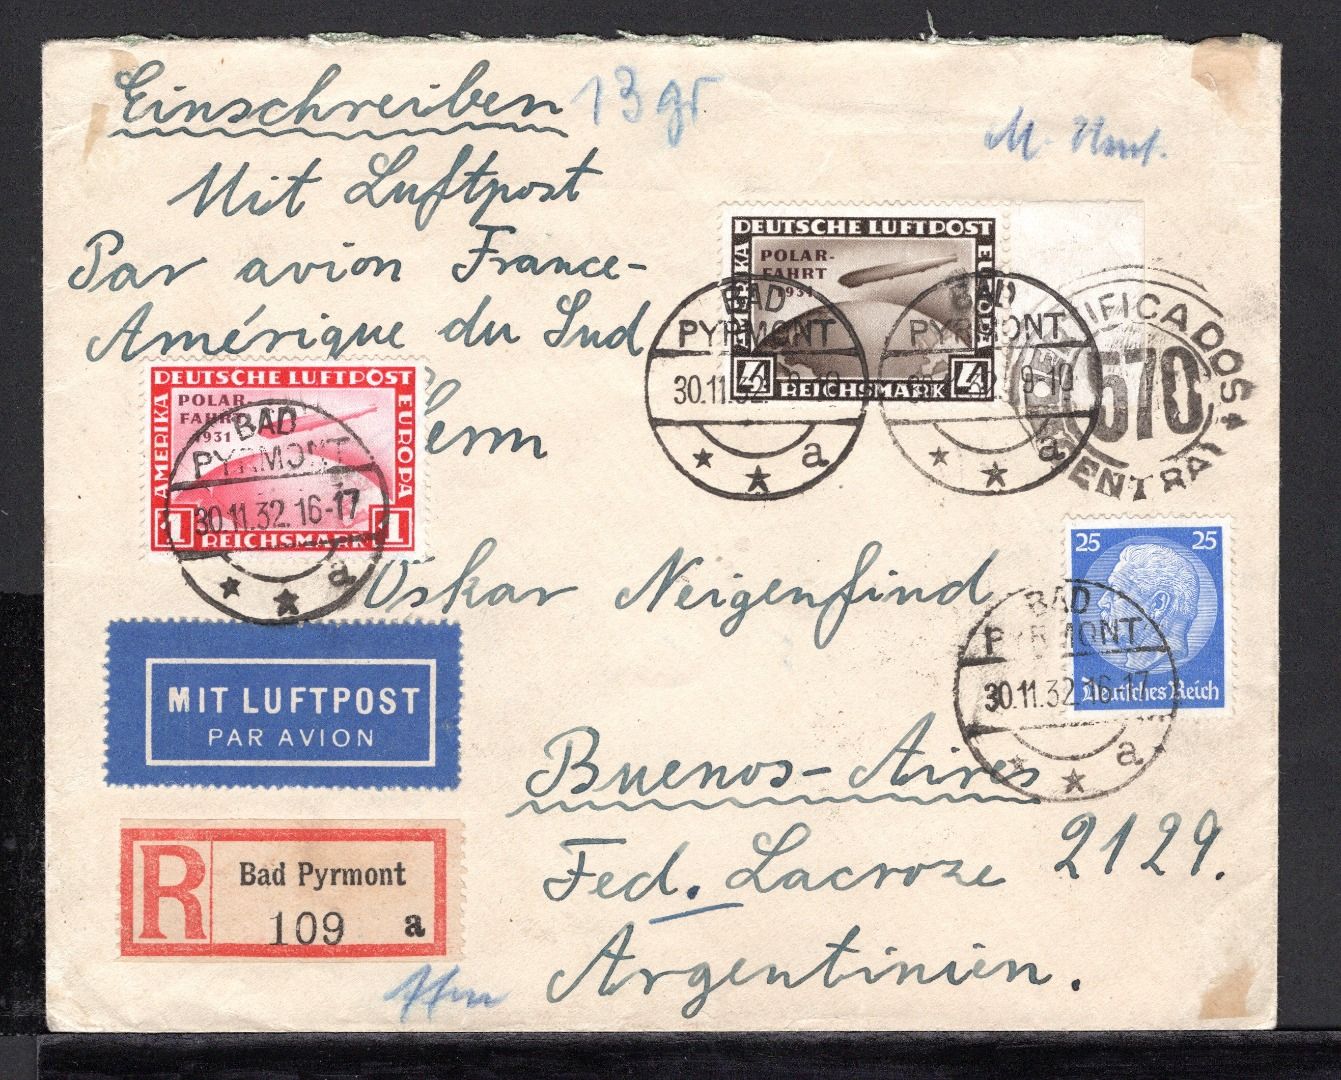 Einschreiben 13 gr
Mit Luftpost
Par avion France-
Amérique du Sud
DEUTSCHE LUFTPOST
POLAR-
FAHRT
1931
AMERIKA
EUROPA
4 REICHSMARK 4
BAD
PYRMONT
30.11.32. 9-10
a
BAD
PYRMONT
9-10
a
CERTIFICADOS
570
CENTRAL
DEUTSCHE LUFTPOST
POLAR-
FAHRT
1931
AMERIKA
EUROPA
1 REICHSMARK 1
BAD
PYRMONT
30.11.32. 16-17
a
Herrn
Oskar Neigenfind
25 25
Deutsches Reich
BAD
PYRMONT
30.11.32. 16-17
a
MIT LUFTPOST
PAR AVION
Buenos-Aires
Fed. Lacroze 2129.
Argentinien.
R Bad Pyrmont
109 a